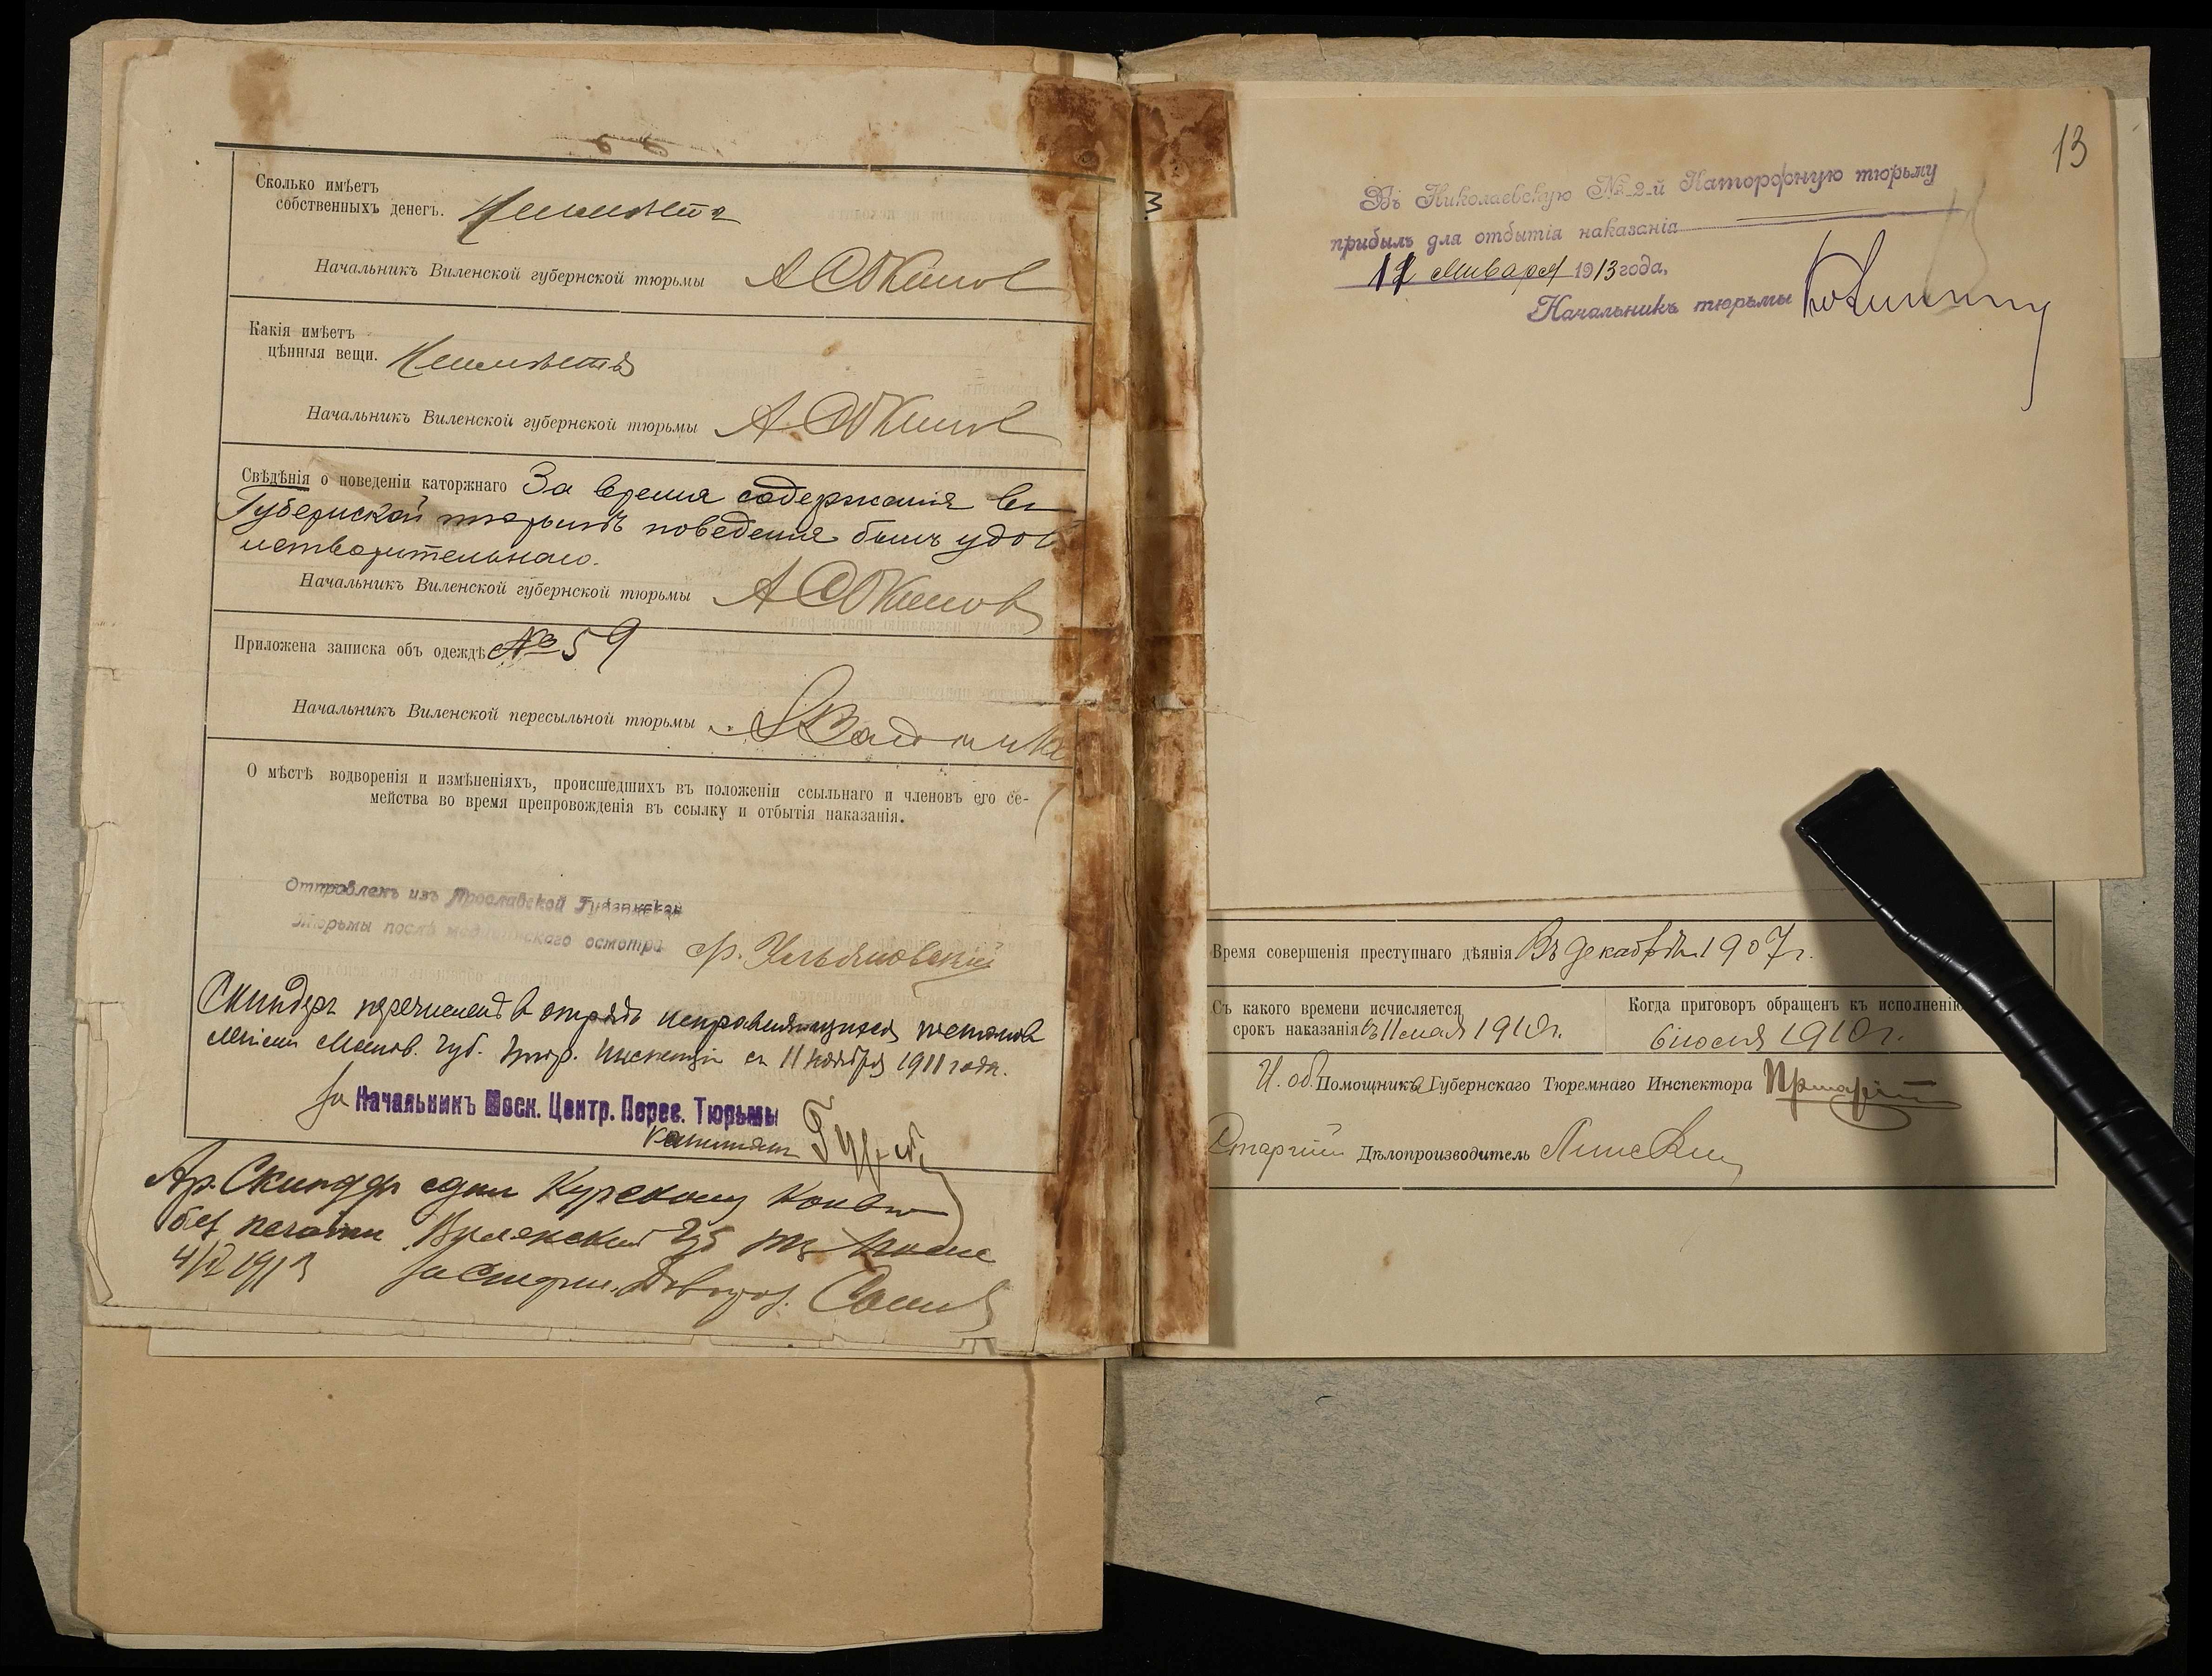 Сколько имѣетъ
собственныхъ денегъ. Неимѣетъ
Начальникъ Виленской губернской тюрьмы
Какія имѣетъ
цѣнныя вещи. Неимѣетъ
Начальникъ Виленской губернской тюрьмы
Свѣдѣнія о поведеніи каторжнаго За время содержанія въ
Губернской тюрьмѣ поведенія былъ удов
летворительнаго.
Начальникъ Виленской губернской тюрьмы
Приложена записка объ одеждѣ № 59
Начальникъ Виленской пересыльной тюрьмы
О мѣстѣ водворенія и измѣненіяхъ, происшедшихъ въ положеніи ссыльнаго и членовъ его се-
мейства во время препровожденія въ ссылку и отбытія наказанія.
Отправленъ изъ Ярославской Губернской
Тюрьмы послѣ медицинскаго осмотра
Скиндеръ перечисленъ в отрядъ исправляющихся
Губ. Тюр. Инспекціи съ 11 ноября 1911 года.
За Начальникъ Моск. Центр. Перес. Тюрьмы
Капитанъ
Ар. Скиндеръ сданъ Курскому Конвою
без печати Виленской Губ
1913
13
Въ Николаевскую №-2-й Каторжную тюрьму
прибылъ для отбытія наказанія
12 Января 1913 года,
Начальникъ тюрьмы
Время совершенія преступнаго дѣянія Въ декабрѣ 1907 г.
Съ какого времени исчисляется
срокъ наказанія съ 11 мая 1910 г.
Когда приговоръ обращенъ къ исполненію
6 іюля 1910 г.
И. об. Помощника Губернскаго Тюремнаго Инспектора
Старшій Дѣлопроизводитель